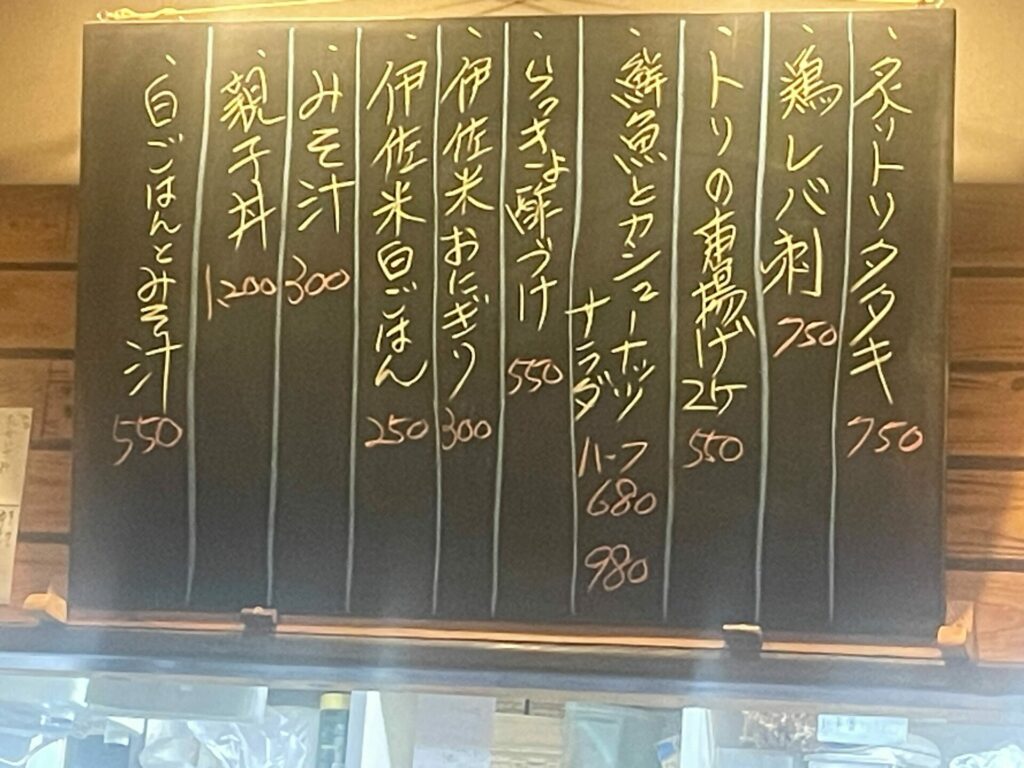 ・炙りトリタタキ 750
・鶏レバ刺 750
・トリの唐揚げ2ケ 550
・鮮魚とカシューナッツ
サラダ ハーフ 680
980
・らっきょ酢づけ 550
・伊佐米おにぎり 300
・伊佐米白ごはん 250
・みそ汁 300
・親子丼 1,200
・白ごはんとみそ汁 550